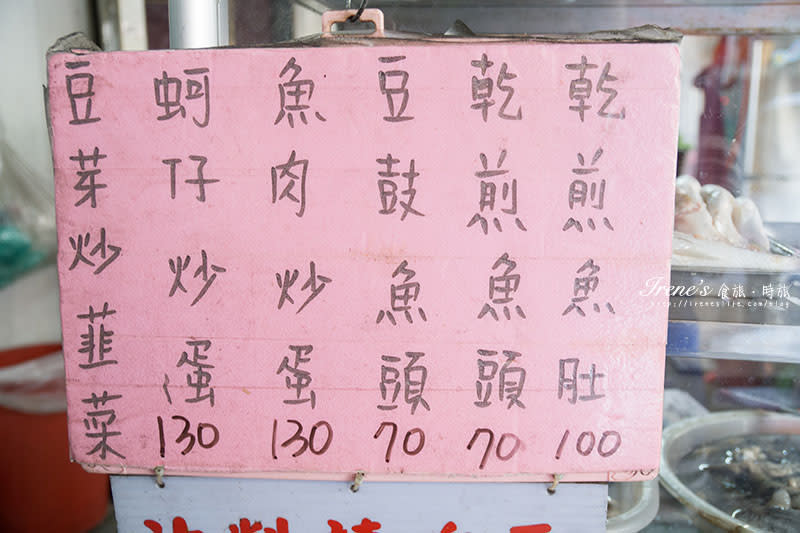 乾煎魚肚 100
乾煎魚頭 70
豆鼓魚頭 70
魚肉炒蛋 130
蚵仔炒蛋 130
豆芽炒韮菜
Irene's 食旅．時旅